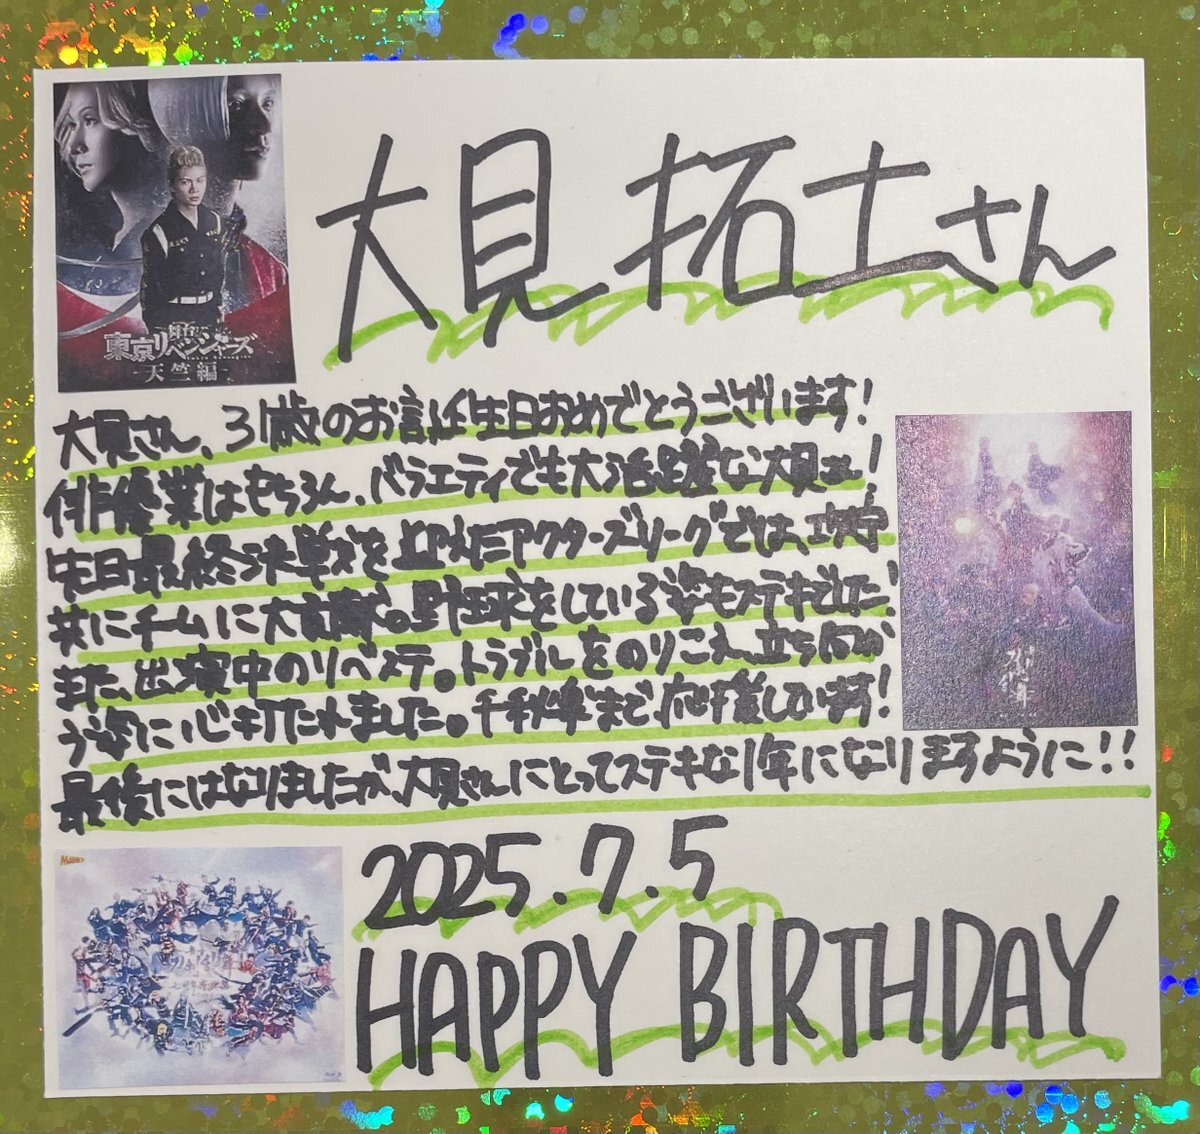 大見 拓土さん
舞台
東京リベンジャーズ
-天竺編-
大見さん、31歳のお誕生日おめでとうございます!
俳優業はもちろん、バラエティでも大活躍な大見さん!
先日最終決戦を迎えたアクターズリーグでは、攻守
共にチームに大貢献。野球をしている姿もステキでした!
また、出演中のリベステ。トラブルをのりこえ、立ち向か
う姿に心打たれました。千秋楽まで応援しています!
最後にはなりましたが、大見さんにとってステキな1年になりますように!!
2025.7.5
HAPPY BIRTHDAY